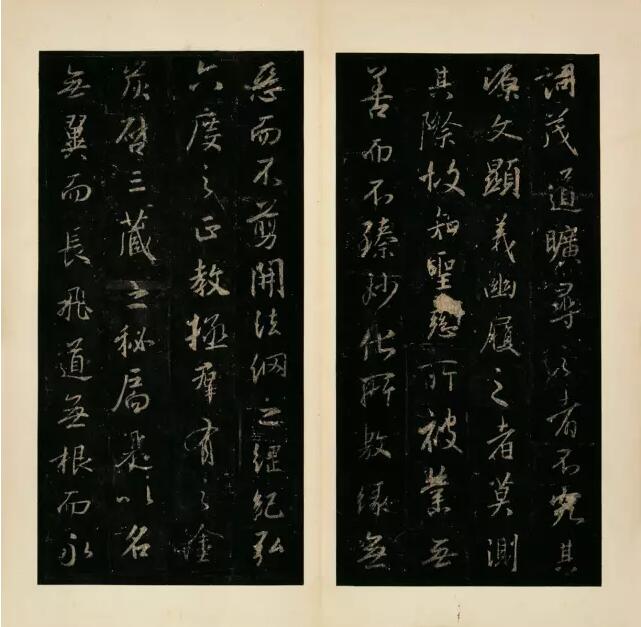 詞茂道曠尋之者不究其
源文顯義幽履之者莫測
其際故知聖慈所被業無
善而不臻妙化所敷緣無
惡而不剪開法網之綱紀弘
六度之正教拯羣有之塗
炭啓三藏之秘扃是以名
無翼而長飛道無根而永